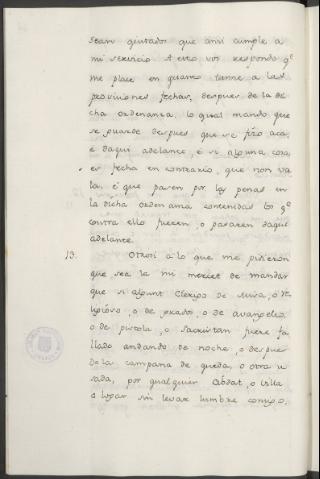 sean quitados que assi cumple a
mi servicio A esto vos respondo q.e
me place en quanto tanne a las
provisiones fechas, despues de la di
cha ordenanza. lo qual mando que
se guarde despues que se fizo aca,
e daqui adelante, e si alguna cosa
es fecha en contrario, que non va
la, é que pasen por las penas en
la dicha ordenanza contenidas los q.e
contra ello fueren, o pasaren daqui
adelante.
13. Otrosi a lo que me pidieron
que sea la mi merced de mandar
que si algunt Clerigo de Misa, o re
ligioso, o de grados, o de avangelio
o de pistola, o sacristan fuere fa
llado andando de noche, o despues
de la campana de queda, o otra u
sada, por qualquier Cibdat, o villa
o lugar sin levar lumbre consigo,